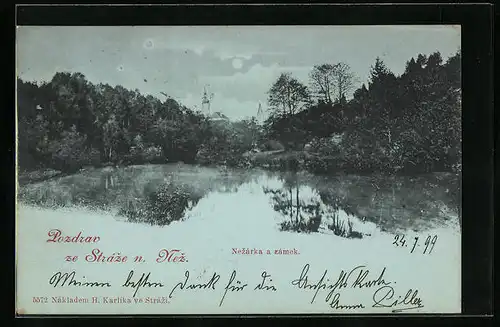 Pozdrav
ze Stráže n. Než.
Nežárka a zámek.
24. 7 99
Meinen besten Dank für die Ansichts Karte
Anna Piller
5572 Nákladem H. Karlika ve Stráži.